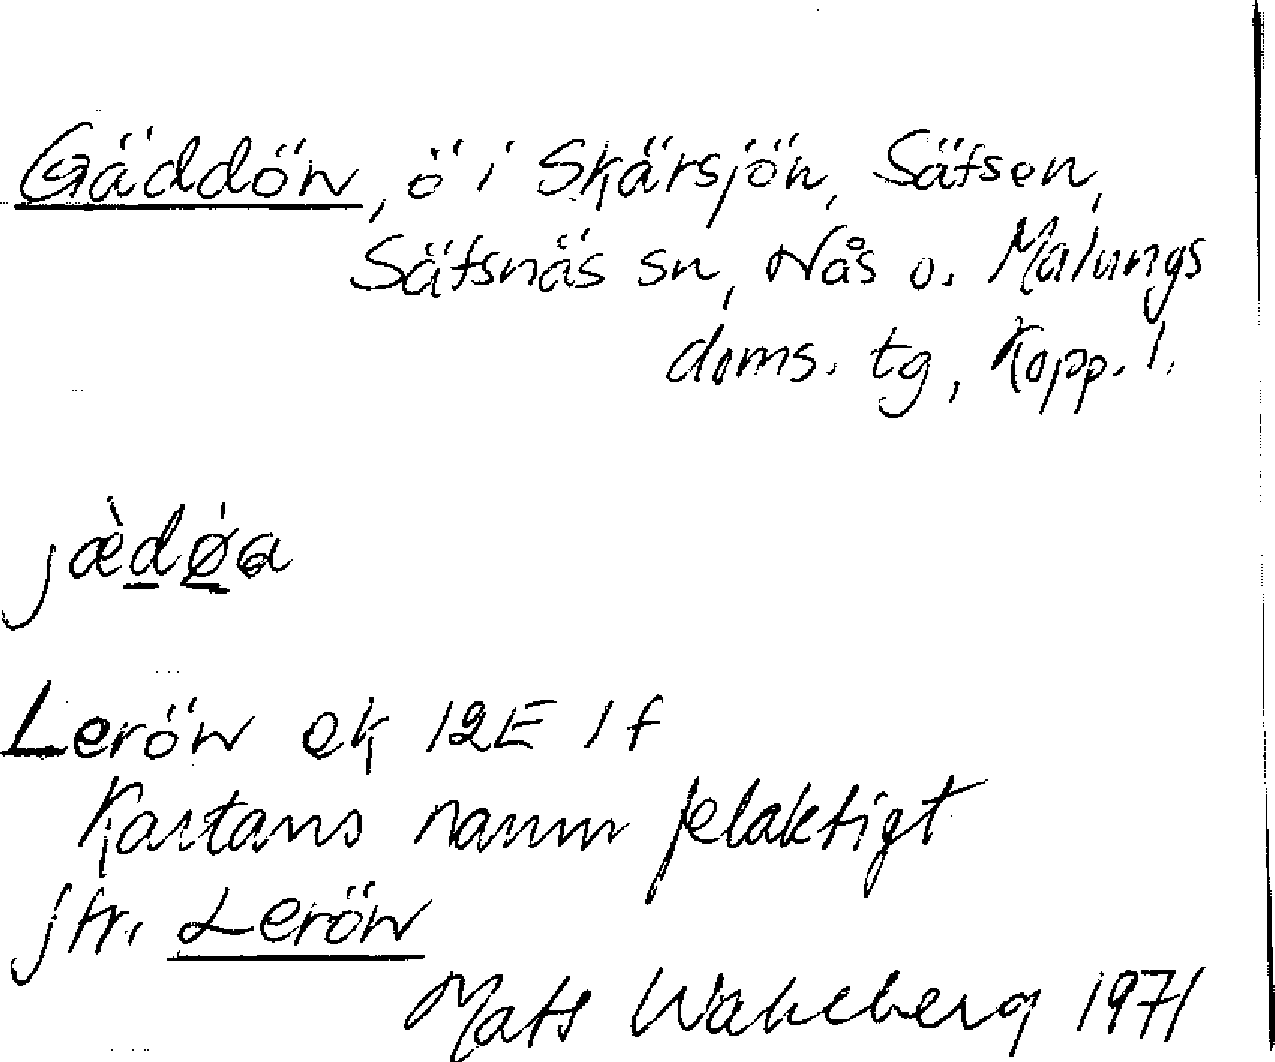 Gäddön, ö i Skärsjön, Säfsen,
Säfsnäs sn, Nås o. Malungs
doms. tg, Kopp. l.
jæ̀d̲ǿ̲a
Lerön ek 12E 1f
Kartans namn felaktigt
jfr. Lerön
Mats Wahlberg 1971